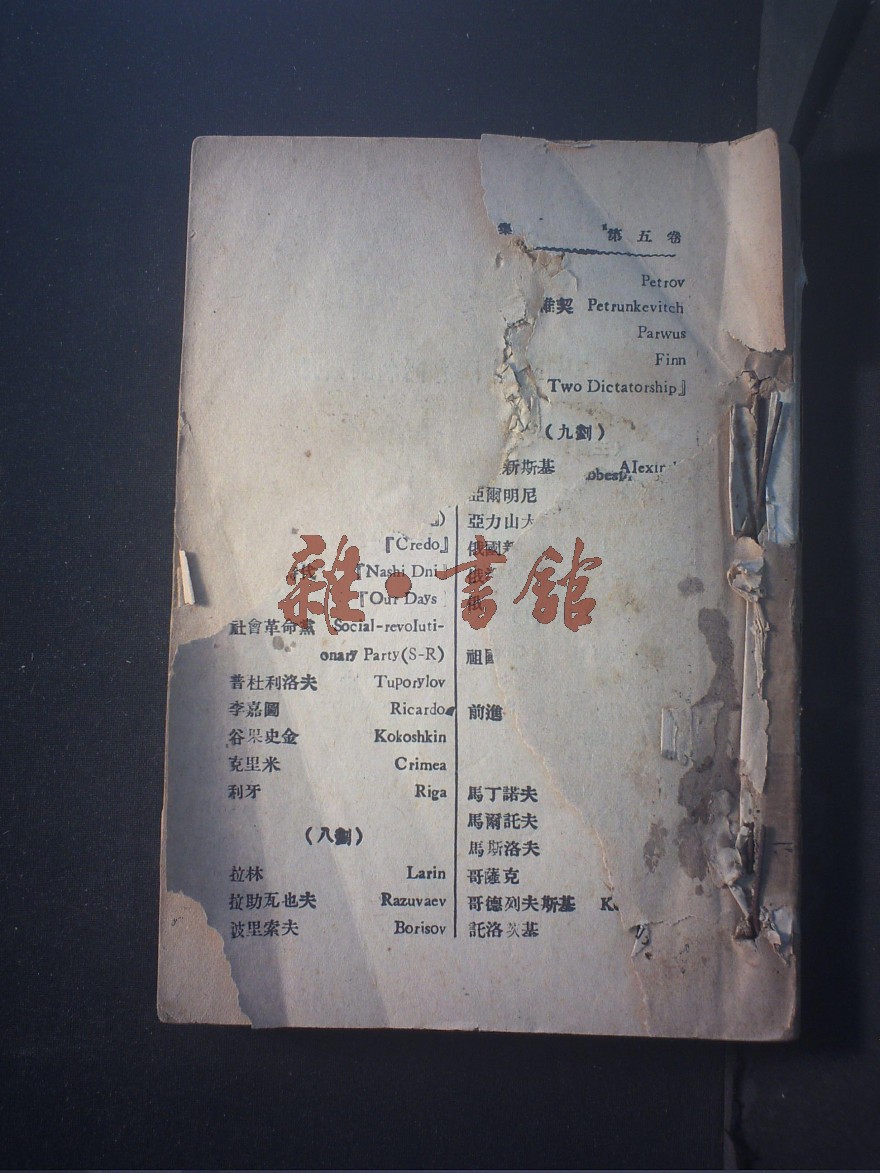 集 第五卷
『Credo』
代 『Nashi Dni』
『Our Days
社會革命黨 Social-revoluti-
onary Party(S-R)
普杜利洛夫 Tuporylov
李嘉圖 Ricardo
谷果史金 Kokoshkin
克里米 Crimea
利牙 Riga
(八劃)
拉林 Larin
拉助瓦也夫 Razuvaev
波里索夫 Borisov
Petrov
維契 Petrunkevitch
Parwus
Finn
Two Dictatorship』
(九劃)
新斯基
亞爾明尼
亞力山大
俄國
俄
祖國
前進
馬丁諾夫
馬爾託夫
馬斯洛夫
哥薩克
哥德列夫斯基
託洛茨基
雜·書館